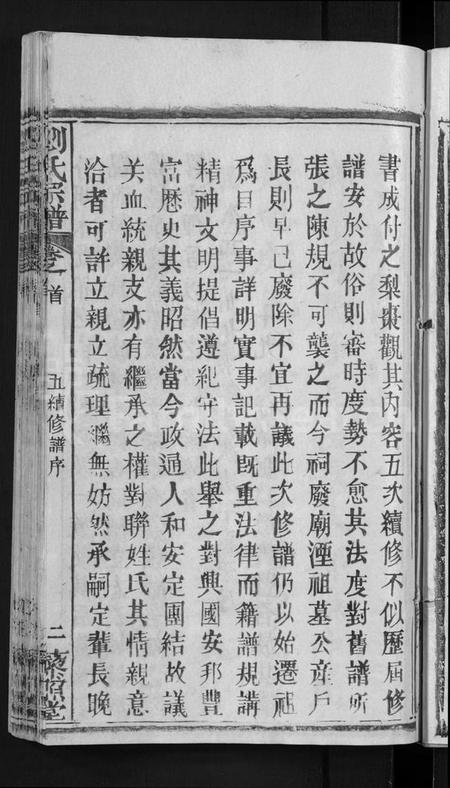 書成付之梨棗觀其內容五次續修不似歷屆修
譜安於故俗則審時度勢不愈其法度對舊譜所
張之陳規不可襲之而今祠廢廟湮祖墓公產戶
長則早已廢除不宜再議此次修譜仍以始遷祖
爲日序事詳明實事記載旣重法律而籍譜規講
精神文明提倡遵紀守法此舉之對興國安邦豐
富歷史其義昭然當今政通人和安定團結故議
关血統親支亦有繼承之權對聯姓氏其情親意
洽者可許立親立疏理繼無妨然承嗣定輩長晚
劉氏宗譜
卷之首
五續修譜序
二
堂